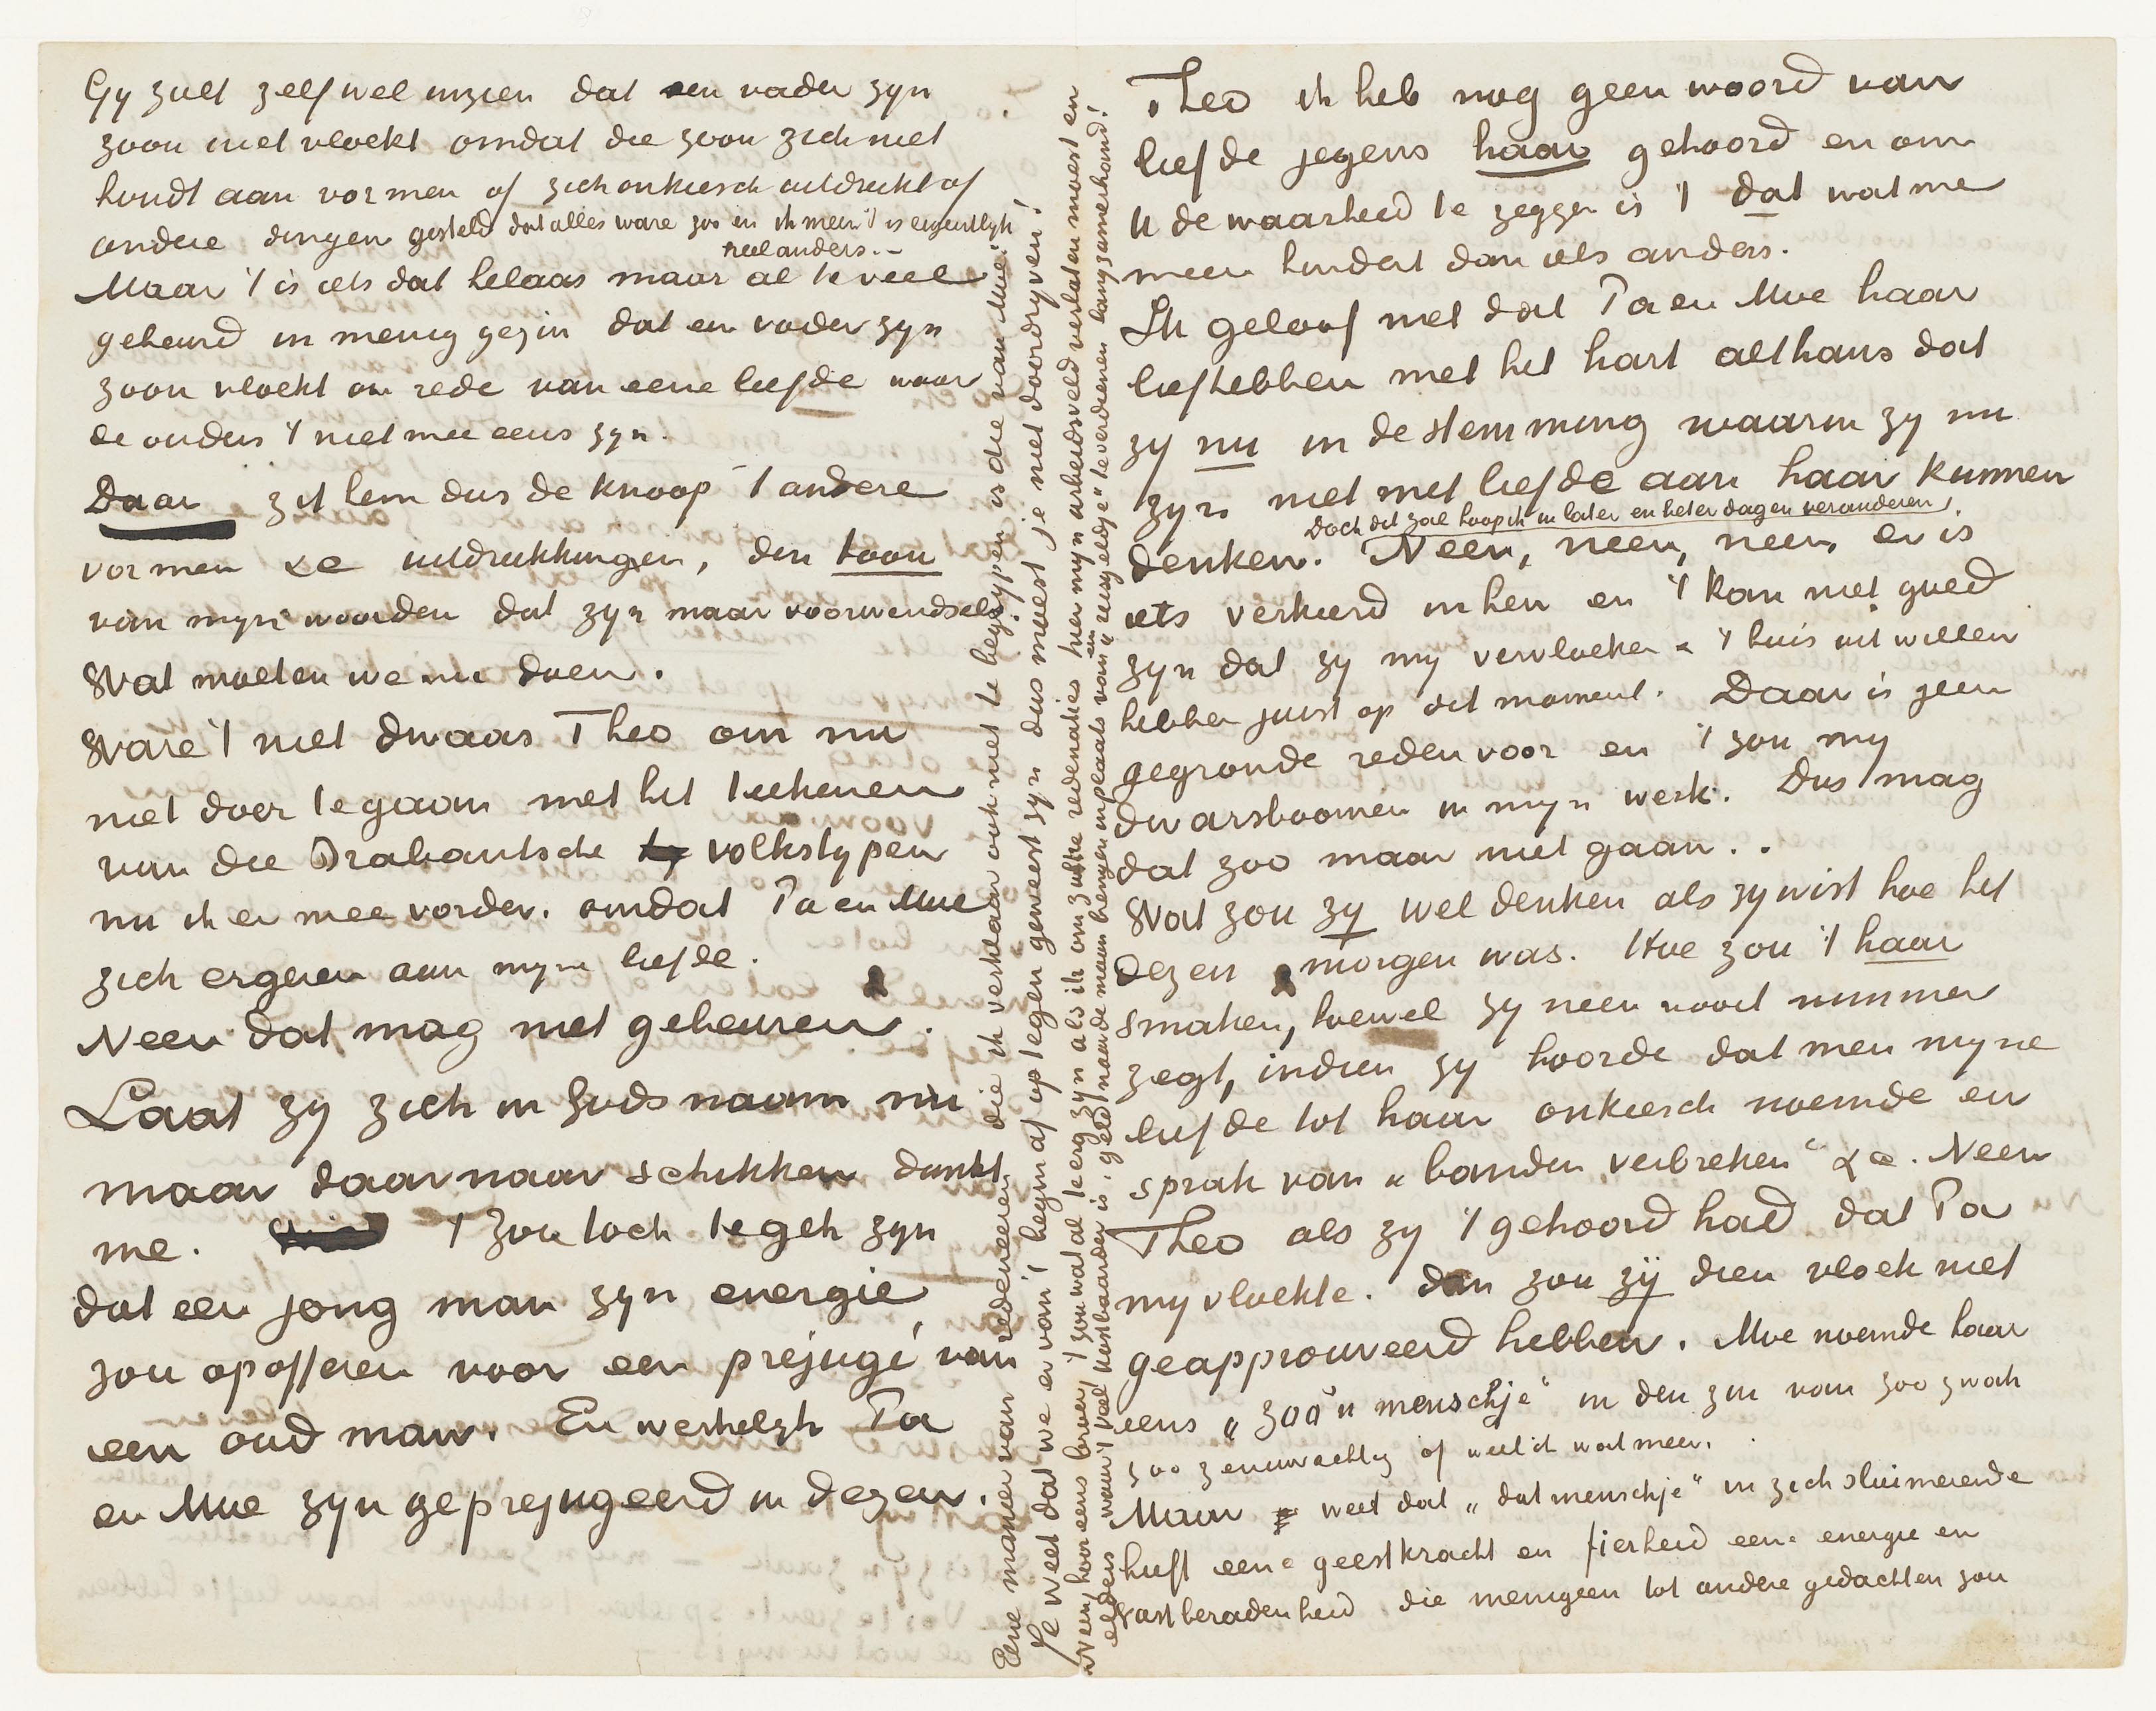 Gy zult zelf wel inzien dat een vader zyn
zoon niet vloekt omdat die zoon zich niet
houdt aan vormen of zich onkiesch uitdrukt of
andere dingen gesteld dat alles ware zoo en ik meen 't is eigentlyk
heel anders.–
Maar 't is iets dat helaas maar al te veel
gebeurd in menig gezin dat een vader zyn
zoon vloekt om rede van eene liefde waar
de ouders 't niet mee eens zyn.
Daar zit hem dus de knoop 't andere
vormen &c uitdrukkingen, den toon
van myne woorden dat zyn maar voorwendsels.
Wat moeten we nu doen.
Ware 't niet dwaas Theo om nu
niet door te gaan met het teekenen
van die Brabantsche ty volkstypen
nu ik er mee vorder. omdat Pa en Moe
zich ergeren aan myne liefde.
Neen dat mag niet gebeuren.
Laat zy zich in Gods naam nu
maar daarnaar schikken dunkt
me. 't Zou toch te gek zyn
dat een jong man zyn energie
zou opofferen voor een préjugé van
een oud man. En werkelyk Pa
en Moe zyn geprejugeerd in dezen.
Eene manier van redeneeren die ik verklaar ook niet te begrypen is die van Moe:
Je weet dat we er van 't begin af op tegen geweest zyn dus moest je niet doordryven!
Neen hoor eens broer, 't zou wat al te erg zyn als ik om zulke redenaties hier myn arbeidsveld verlaten moest en
elders waar 't veel kostbaarder is, geld naar de maan brengen inplaats van en „reisgeldje" te verdienen langzamerhand!
Theo ik heb nog geen woord van
liefde jegens haar gehoord en om
U de waarheid te zeggen is 't dat wat me
meer hindert dan iets anders.
Ik geloof niet dat Pa en Moe haar
liefhebben met het hart althans dat
zy nu in de stemming waarin zy nu
zyn niet met liefde aan haar kunnen
Doch dit zal hoop ik in later en beter dagen veranderen.
denken. Neen, neen, neen, er is
iets verkeerd in hen en 't kan niet goed
zyn dat zy my vervloeken & 't huis uit willen
hebben juist op dit moment. Daar is geen
gegronde reden voor en 't zou my
dwarsboomen in myn werk. Dus mag
dat zoo maar niet gaan..
Wat zou zy wel denken als zy wist hoe het
dezen morgen was. Hoe zou 't haar
smaken, hoewel zy neen nooit nimmer
zegt, indien zy hoorde dat men myne
liefde tot haar onkiesch noemde en
sprak van „banden verbreken" &c. Neen
Theo als zy 't gehoord had dat Pa
my vloekte. dan zou zÿ dien vloek niet
geapprouveerd hebben. Moe noemde haar
eens „zoo'n menschje" in den zin van zoo zwak
zoo zenuwachtig of weet ik wat meer.
Maar weet dat „dat menschje" in zich sluimerende
heeft eene geestkracht en fierheid eene energie en
vastberadenheid die menigeen tot andere gedachten zou